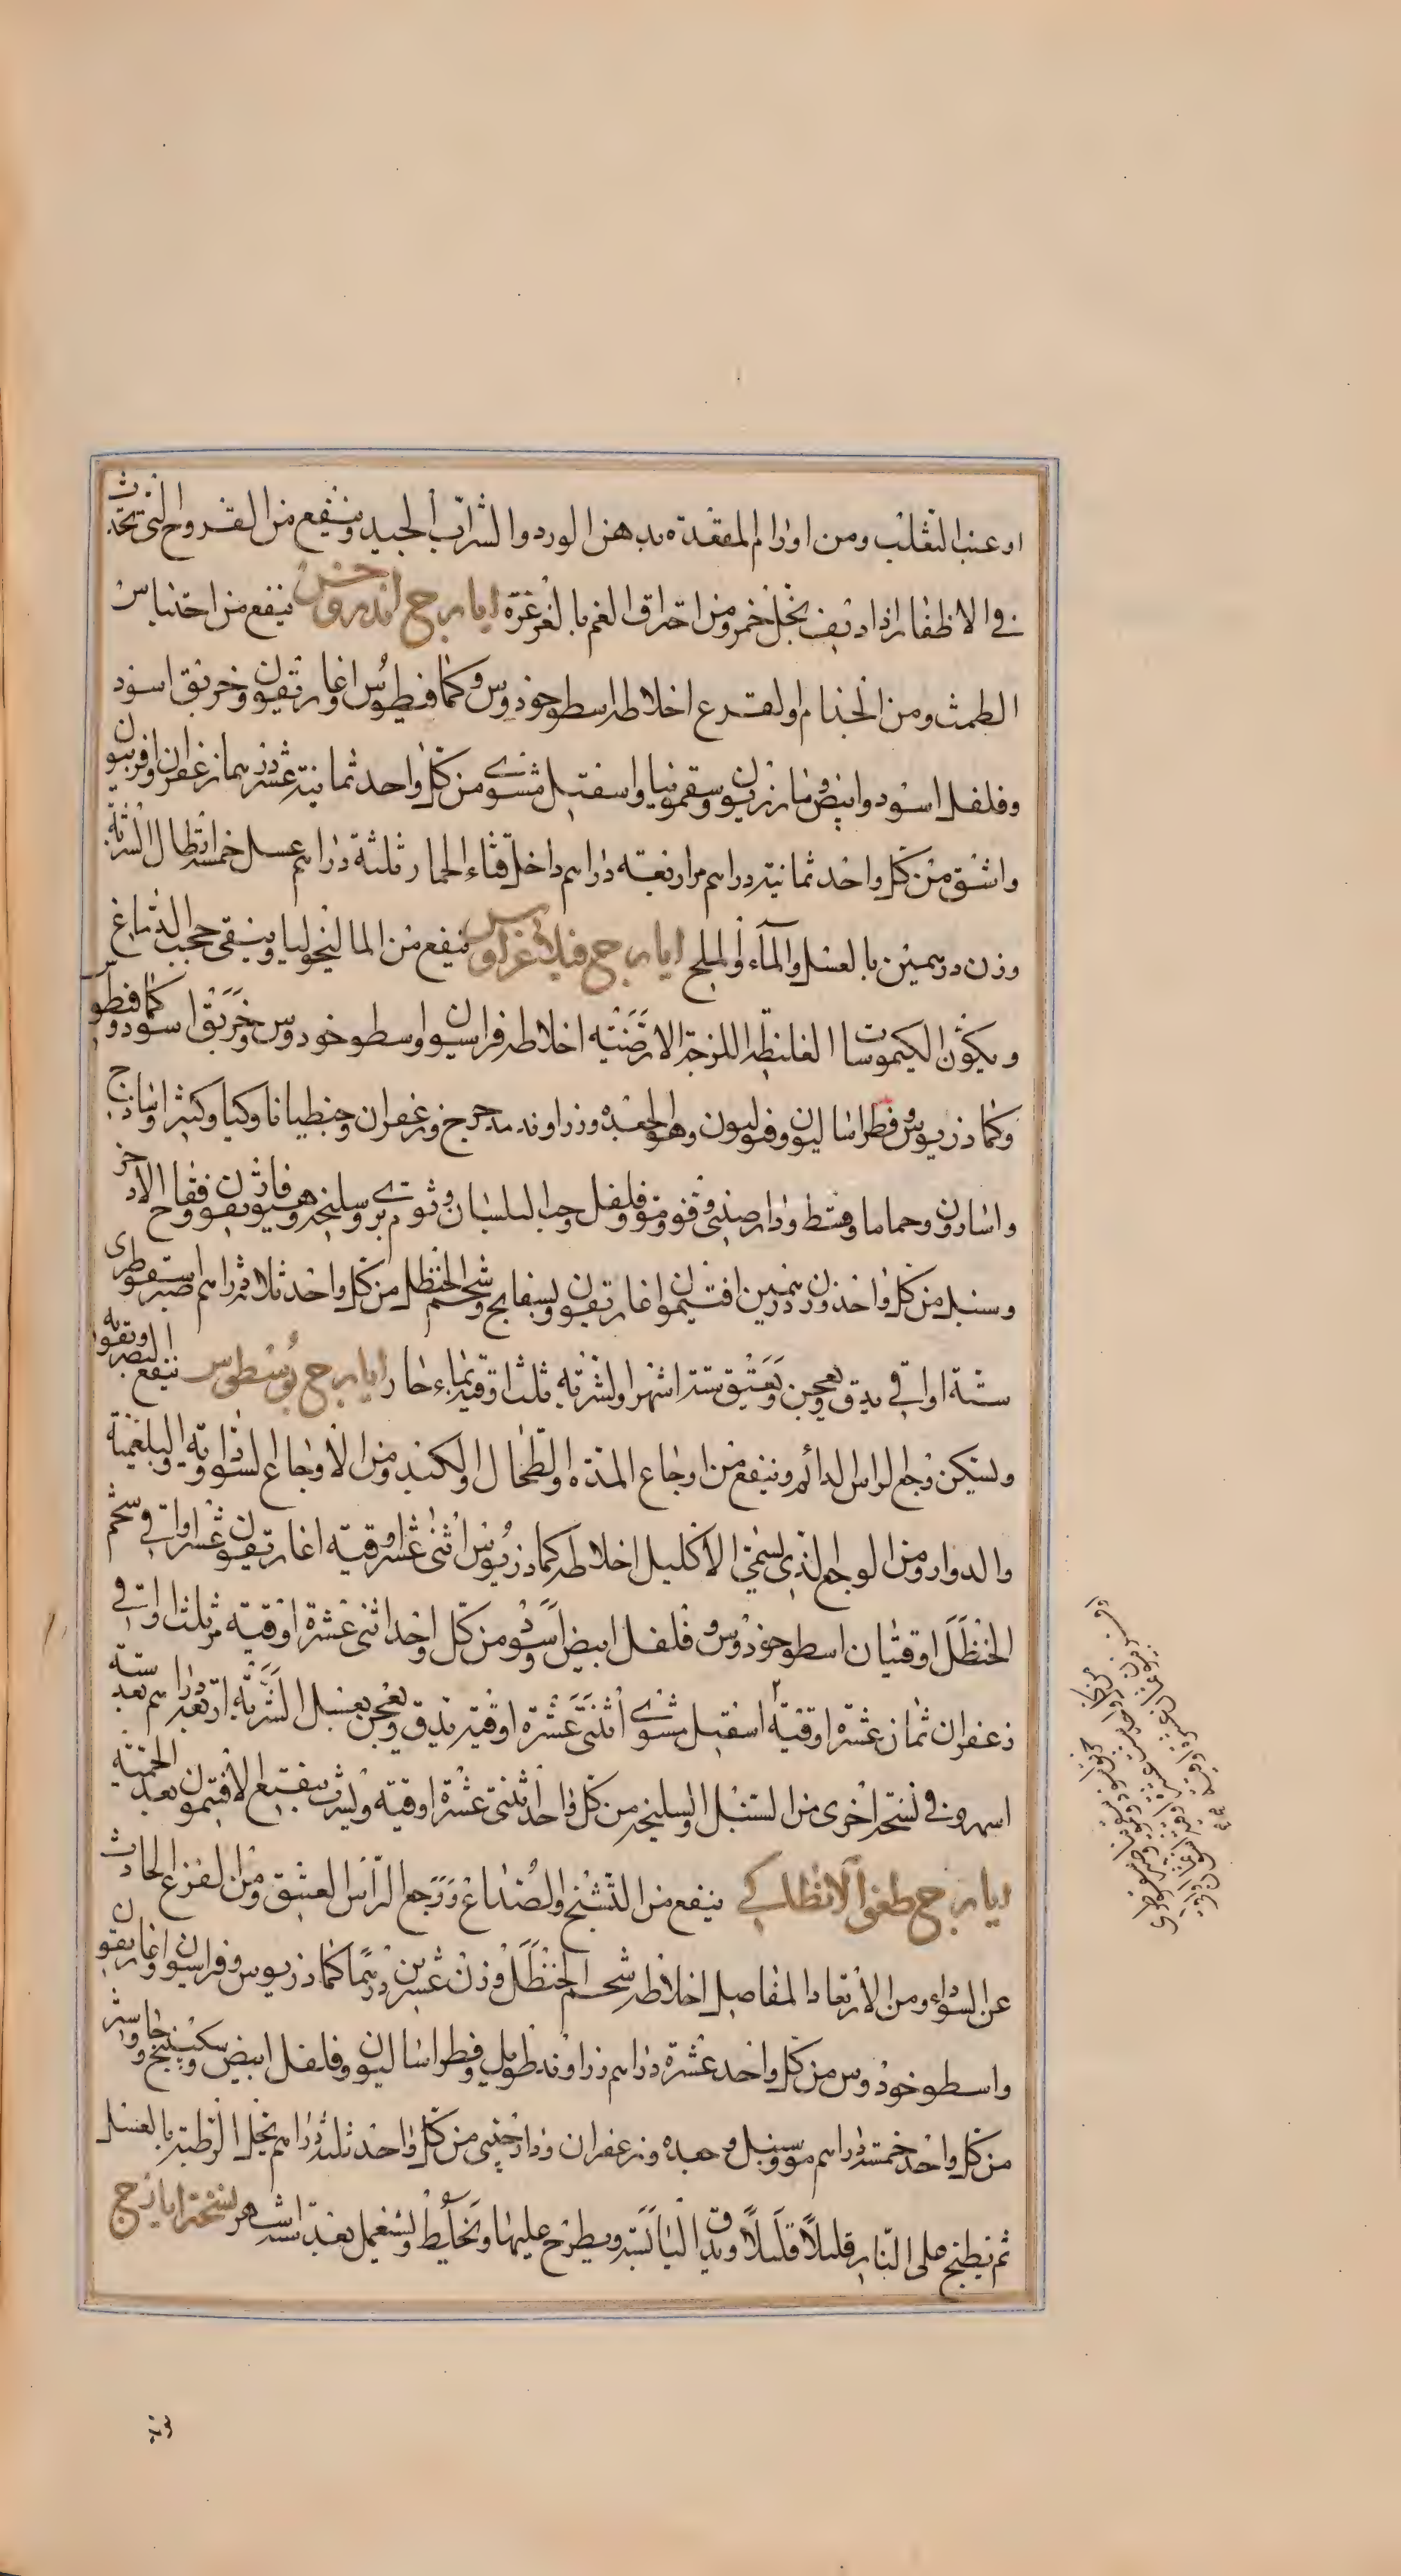 او عنب الثعلب ومن اورام المقعدة بدهن الورد والشراب الجيد وينفع من القروح التى تحدث
فى الاظفار اذا ديف بخل خمر ومن احتراق الفم بالغرغرة ايارج اندروخس ينفع من احتباس
الطمث ومن الجذام والقرع اخلاطه اسطوخودوس وكمافيطوس واغاريقون وخربق اسود
وفلفل اسود وابيض ومازريون وسقمونيا واسقيل مشوى من كل واحد ثمانية عشر درهما زعفران وافربيون
واشق من كل واحد ثمانية دراهم مر اربعة دراهم داخل قثاء الحمار ثلثة دراهم عسل خمسة ارطال الشربة
وزن درهمين بالعسل والمآء والملح ايارج فيلاغريوس ينفع من المالنخوليا وينقى حجب الدماغ
ويكون الكيموسات الغليظة اللزجة الارضية اخلاطه فراسيون واسطوخودوس وخربق اسود وكمافيطوس
وكمادريوس وفطراساليون وفوليون وهو الجعدة وزراوند مدحرج وزعفران وجنطيانا وكيا وكثيرا وساذج
واسارون وحماما وقسط ودارصينى وفو ومو وفلفل وحب البلسان وثوم برى وسليخة وهيوفاريقون وفقاح الاذخر
وسنبل من كل واحد وزن درهمين افتيمون واغاريقون وبسفايج وشحم الحنظل من كل واحد ثلاثة دراهم صبر اسقوطرى
ستة اواقى يدق ويعجن ويعتق ستة اشهر والشربة ثلث اوقية بماء حار ايارج يوسطوس ينفع البصر ويقويه
ويسكن وجع الراس الدائم وينفع من اوجاع المعدة والطحال والكبد ومن الاوجاع السوداوية والبلغمية
والدوار ومن الوجع الذى يسمى الاكليل اخلاطه كمادريوس اثنى عشر اوقية اغاريقون عشر اواقى وشحم
الحنظل اوقيتان اسطوخودوس وفلفل ابيض واسود من كل واحد اثنى عشرة اوقية مر ثلث اواقى
زعفران ثمان عشرة اوقية اسقيل مشوى اثنتى عشرة اوقية يدق ويعجن بعسل الشربة اربعة دراهم بعد ستة
اسهر وفى نسخة اخرى من السنبل والسليخة من كل واحد اثنتى عشرة اوقية ويشرب بنقيع الافتيمون بعد الحمية
ايارج طغرا الانطاكى ينفع من التشنج والصداع ووجع الراس العتيق ومن الفزع الحادث
عن السوداء ومن الارتعاد المفاصل اخلاطه شحم الحنظل وزن عشرين درهما كمادريوس وفراسيون واغاريقون
واسطوخودوس من كل واحد عشرة دراهم زراوند طويل وفطراساليون وفلفل ابيض وسكبينج وجاوشير
من كل واحد خمسة دراهم مر وسنبل وجعده وزعفران ودارصينى من كل واحد ثلثة دراهم تحل الرطبة بالعسل
ثم يطبخ على النار قليلا قليلا ويدق اليابسة ويطرح عليها ويخلط ويستعمل بعد ستة اشهر نسخة ايارج